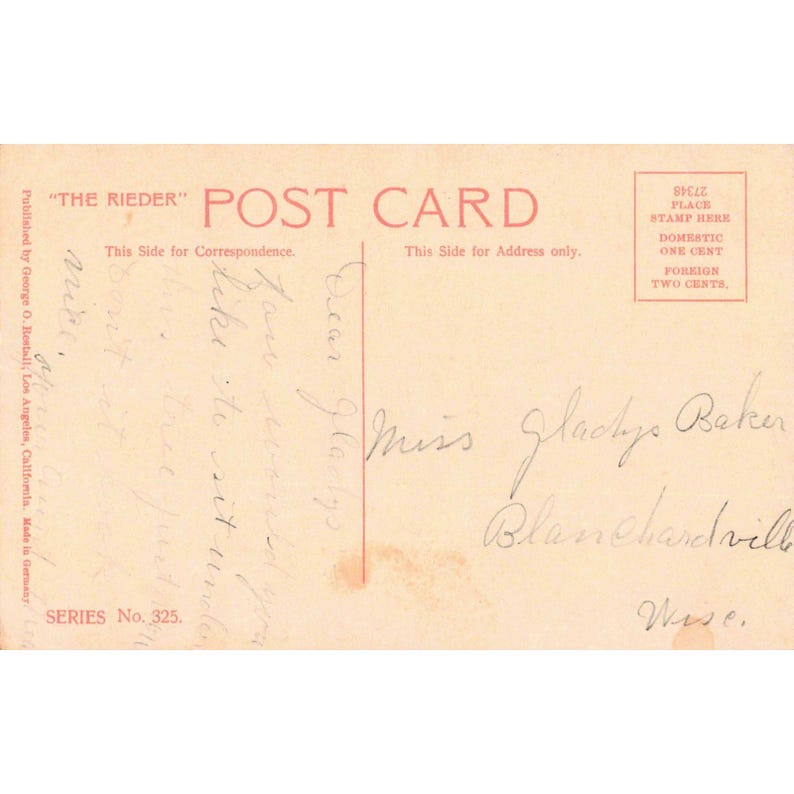 "THE RIEDER" POST CARD
This Side for Correspondence.
This Side for Address only.
27348
PLACE
STAMP HERE
DOMESTIC
ONE CENT
FOREIGN
TWO CENTS.
Published by George O. Restall, Los Angeles, California. Made in Germany.
Dear Gladys
How would you
like to sit under
this tree just
Don't it look
nice.
your aunt
Miss Gladys Baker
Blanchardville
Wisc.
SERIES No. 325.